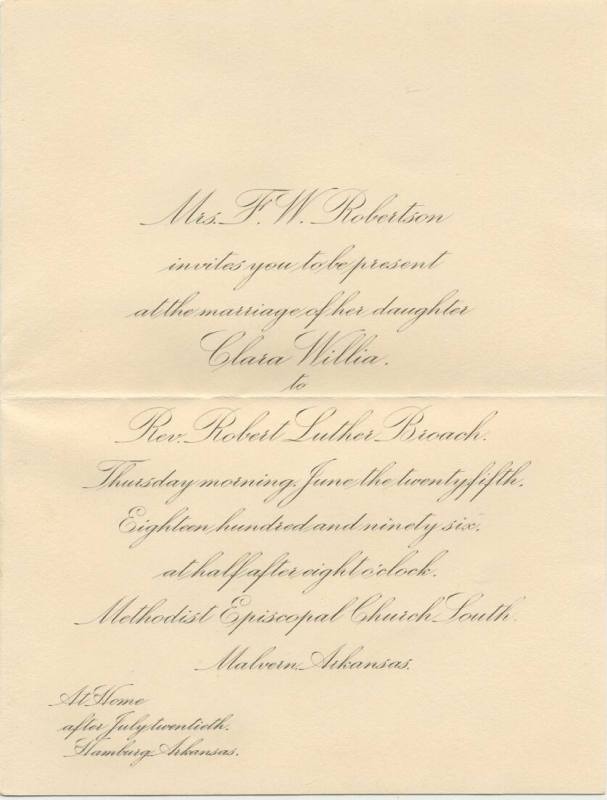 Mrs. F. W. Robertson
invites you to be present
at the marriage of her daughter
Clara Willia.
to
Rev. Robert Luther Broach.
Thursday morning, June the twenty fifth,
Eighteen hundred and ninety six.
at half after eight o'clock.
Methodist Episcopal Church South
Malvern, Arkansas.
At Home
after July twentieth.
Hamburg, Arkansas.